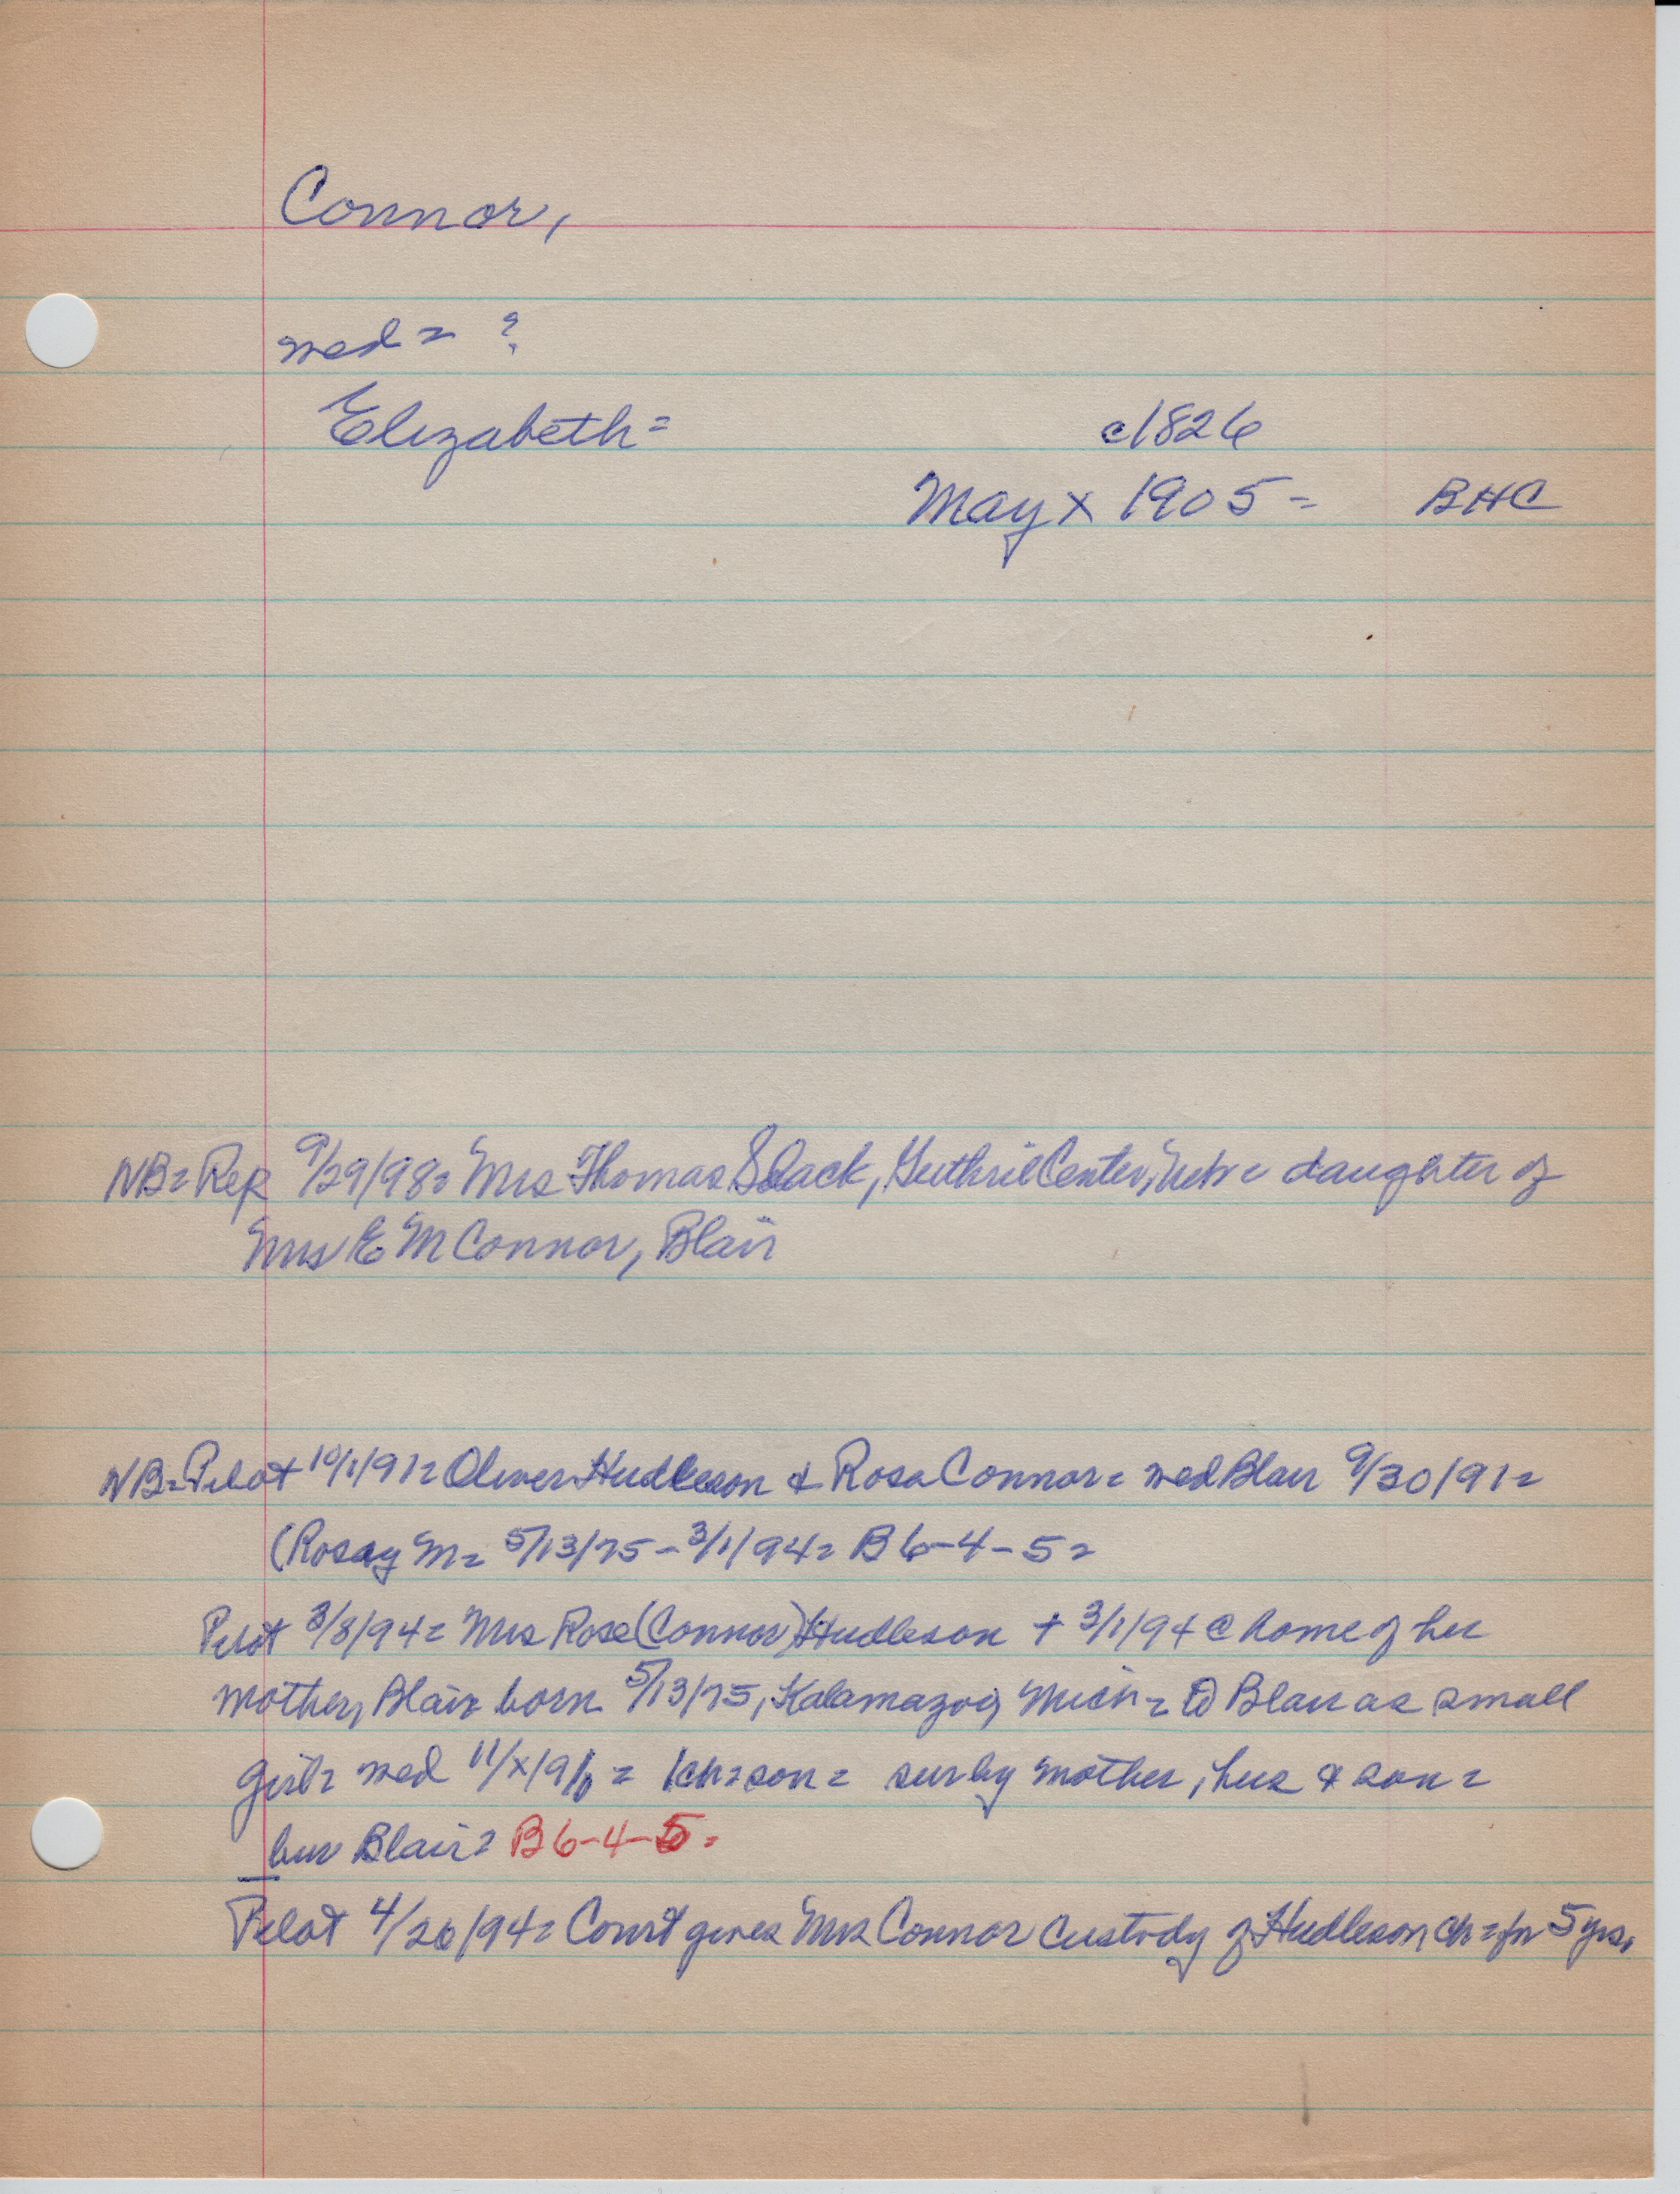 Connor,
wed = ?
Elizabeth = c1826
May x 1905 = BHC
NB = Rep 9/29/98 = Mrs Thomas Slack, Guthrie Center, Neb = daughter of
Mrs E M Connor, Blair
NB = Pilot 10/1/91 = Oliver Hudleson & Rosa Connor = wed Blair 9/30/91 =
(Rosa M = 5/13/75 - 3/1/94 = B 6-4-5 =
Pilot 3/8/94 = Mrs Rose (Connor) Hudleson + 3/1/94 @ home of her
mother, Blair born 5/13/75, Kalamazoo, Mich = Blair as small
girl = wed 11/x/91 = 1ch = son = sur by mother, hus & son =
bur Blair = B 6-4-5 =
Pilot 4/26/94 = Court gives Mrs Connor custody of Hudleson ch = for 5 yrs.